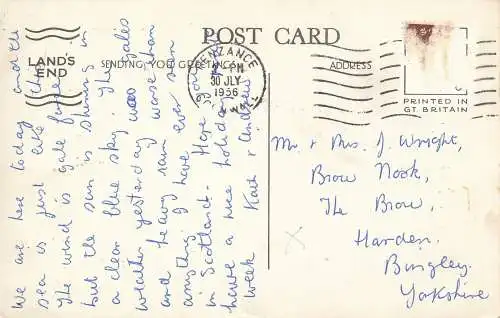 POST CARD
LAND'S
END
SENDING YOU GREETINGS
ADDRESS
PENZANCE
30 JLY
1956
PRINTED IN
GT. BRITAIN
We are here today and the
sea is just like this
The wind is gale force
but the sun is shining in
a clear blue sky. The gales
weather yesterday was worse than
and heavy rain ever saw
anything I have
in Scotland. Hope you
have a nice holiday
week Kath & Andrew
Mr & Mrs. J. Wright,
Brow Nook,
The Brow,
Harden.
Bingley.
Yorkshire